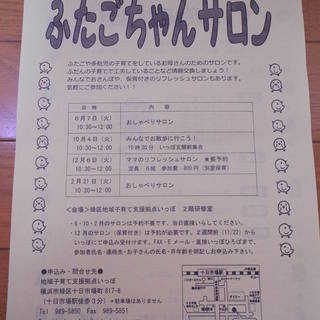 ふたごちゃんサロン
ふたごや多胎児の子育てをしているお母さんのためのサロンです。
ふだんの子育てで工夫していることなど情報交換しましょう！
みんなでおさんぽや、保育付きのリフレッシュサロンもあります。
気軽にご参加ください！！
日時 内容
6月7日（火）
10:30～12:00 おしゃべりサロン
10月4日（火） みんなでお散歩に行こう！
10:30～12:00 10時30分 いっぽ玄関前集合
12月6日（火） ママのリフレッシュサロン ＊要予約
10:30～12:00 定員 6組 参加費 800円（別室保育）
2月21日（火）
10:30～12:00 おしゃべりサロン
＜会場＞緑区地域子育て支援拠点いっぽ 2階研修室
・6・10・2月のサロンは予約不要です。当日直接いらしてください。
・12月のサロン（保育付き）は予約が必要です。2週間前（11/22）から
いっぽにて申込み受付けます。FAX・Eメール・直接いっぽひろばまで、
参加者氏名・連絡先・お子さんの氏名・月年齢を明記しお申込み下さい。
●申込み・問合せ先●
地域子育て支援拠点いっぽ
横浜市緑区十日市場町817-8
（十日市場駅徒歩3分）＊駐車場はありません
Tel 989-5850 Fax 989-5851
十日市場駅